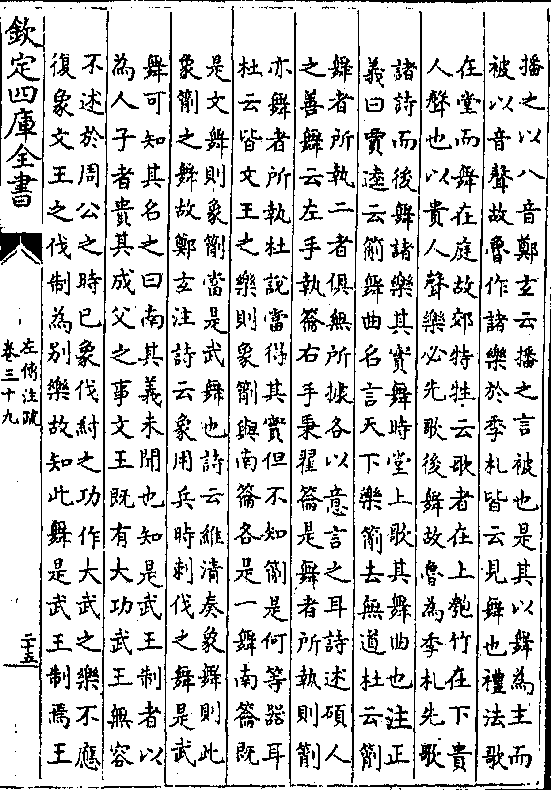 播之以八音鄭玄云播之言被也是其以舞為主而
被以音聲故魯作諸樂於季札皆云見舞也禮法歌
在堂而舞在庭故郊特牲云歌者在上匏竹在下貴
人聲也以貴人聲樂必先歌後舞故魯為季札先歌
諸詩而後舞諸樂其實舞時堂上歌其舞曲也注正
義曰賈逵云箾舞曲名言天下樂箾去無道杜云箾
舞者所執二者俱無所據各以意言之耳詩述碩人
之善舞云左手執籥右手秉翟籥是舞者所執則箾
亦舞者所執杜說當得其實但不知箾是何等器耳
杜云皆文王之樂則象箾與南籥各是一舞南籥既
是文舞則象箾當是武舞也詩云維清奏象舞則此
象箾之舞故鄭玄注詩云象用兵時刺伐之舞是武
舞可知其名之曰南其義未聞也知是武王制者以
為人子者貴其成父之事文王既有大功武王無容
不述於周公之時已象伐紂之功作大武之樂不應
復象文王之伐制為別樂故知此舞是武王制焉王
欽定四庫全書
左傳注疏
卷三十九
二十五